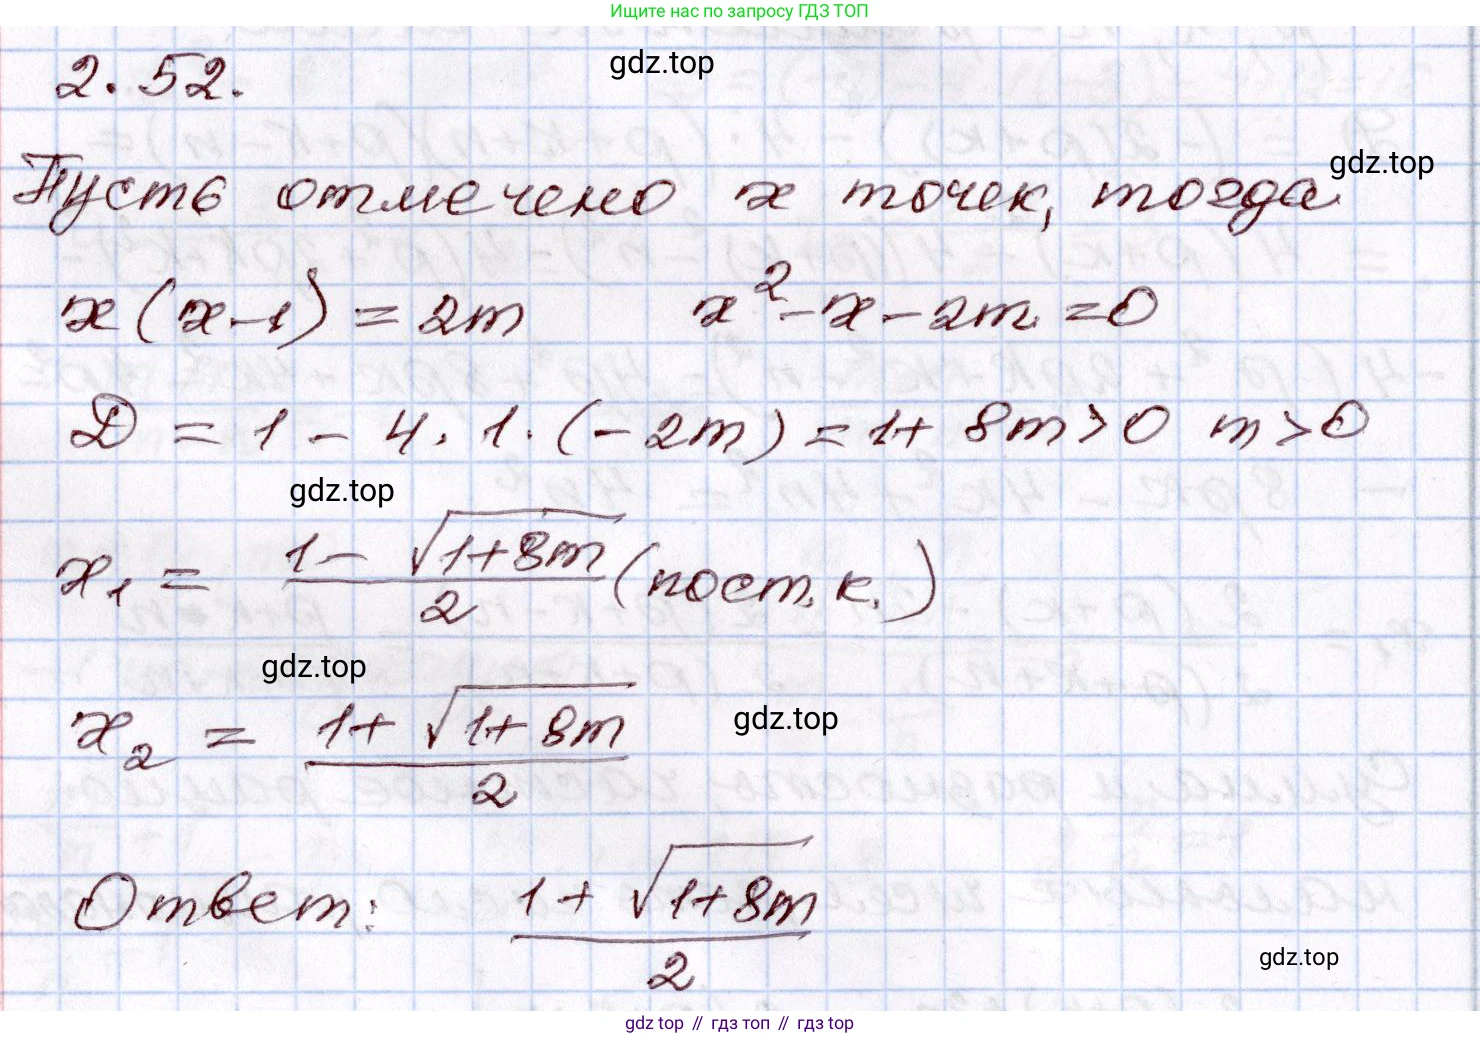 Ищите нас по запросу ГДЗ ТОП
2.52.
gdz.top
Пусть отмечено x точек, тогда
gdz.top
x(x-1) = 2m    x² - x - 2m = 0
D = 1 - 4 · 1 · (-2m) = 1 + 8m > 0  m > 0
gdz.top
x₁ = (1 - √(1+8m))/2 (пост. к.)
gdz.top
x₂ = (1 + √(1+8m))/2
gdz.top
Ответ: (1 + √(1+8m))/2
gdz.top
gdz top // гдз топ // гдз top